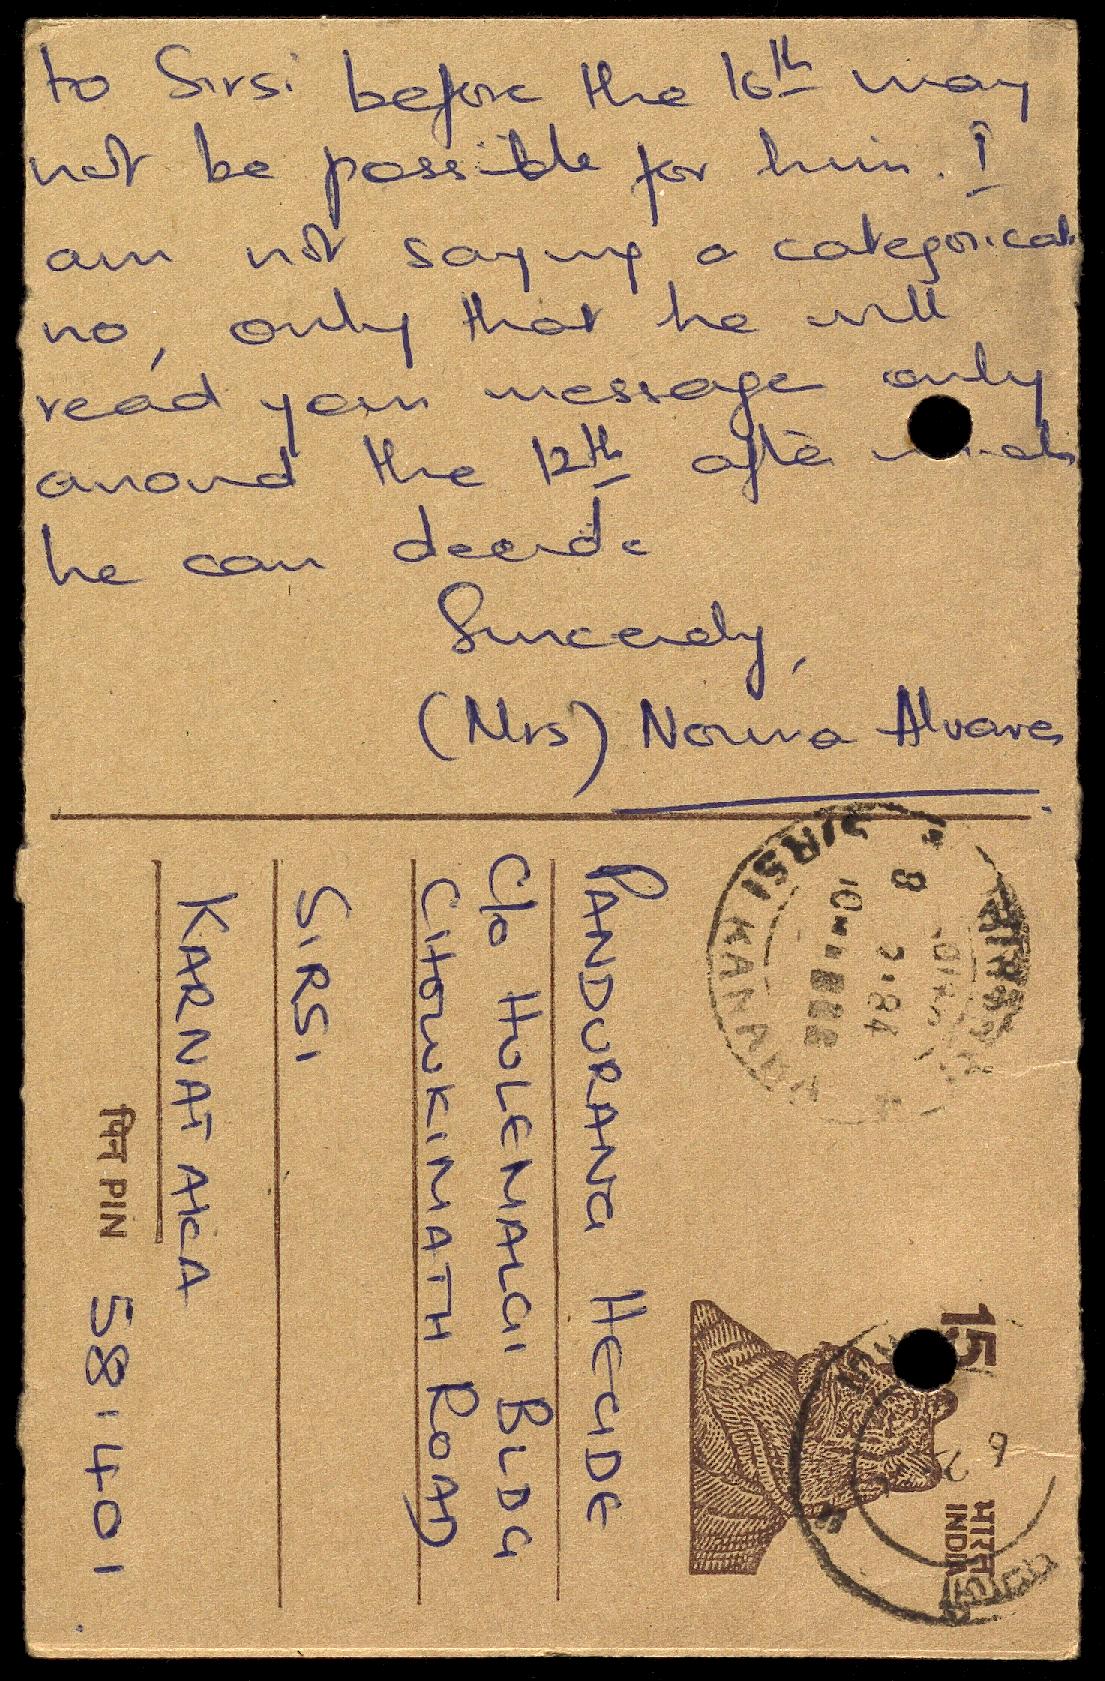 to Sirsi before the 16th may
not be possible for him. I
am not saying a categorical
no, only that he will
read your message only
around the 12th after which
he can decide
Sincerely,
(Mrs) Norma Alvares
PANDURANG HEGDE
C/o HOLEMALGI BLDG
CHOWKIMATH ROAD
SIRSI
KARNATAKA
पिन PIN 581401
SIRSI KANARA
8
2·84
15
भारत
INDIA